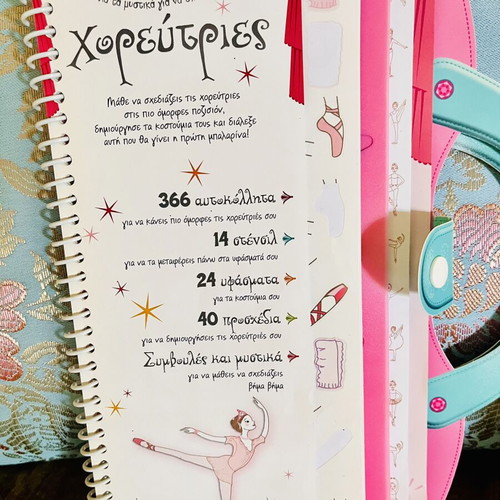 τα μυστικά για να
Χορεύτριες
Μάθε να σχεδιάζεις τις χορεύτριες
στις πιο όμορφες ποζισιόν,
δημιούργησε τα κοστούμια τους και διάλεξε
αυτή που θα γίνει η πρώτη μπαλαρίνα!
366 αυτοκόλλητα
για να κάνεις πιο όμορφες τις χορεύτριές σου
14 στένσιλ
για να τα μεταφέρεις πάνω στα υφάσματά σου
24 υφάσματα
για τα κοστούμια σου
40 προσχέδια
για να δημιουργήσεις τις χορεύτριές σου
Συμβουλές και μυστικά
για να μάθεις να σχεδιάζεις
βήμα βήμα